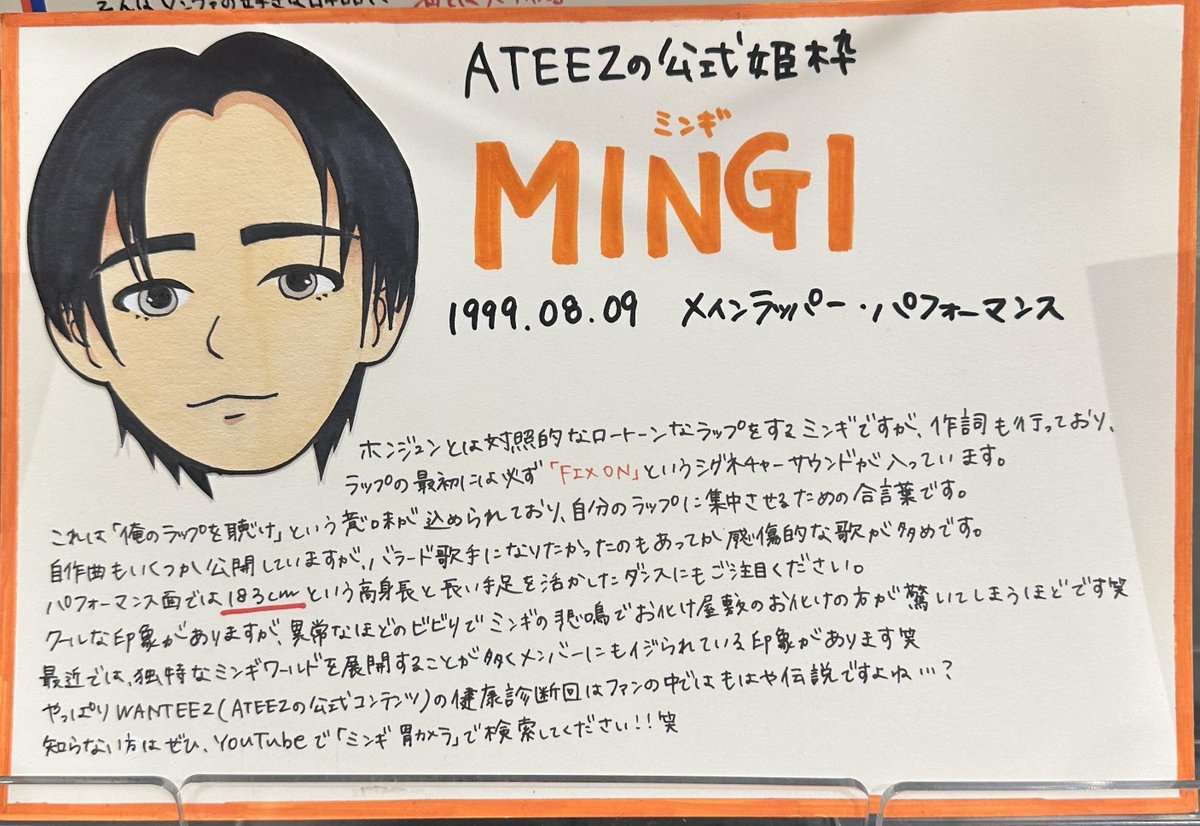 ATEEZの公式姫枠
ミンギ
MINGI
1999.08.09 メインラッパー・パフォーマンス
ホンジュンとは対照的なロートーンなラップをするミンギですが、作詞も行っており、
ラップの最初には必ず「FIX ON」というシグネチャーサウンドが入っています。
これは「俺のラップを聴け」という意味が込められており、自分のラップに集中させるための合言葉です。
自作曲もいくつか公開していますが、バラード歌手になりたかったのもあってか感傷的な歌が多めです。
パフォーマンス面では183cmという高身長と長い手足を活かしたダンスにもご注目ください。
クールな印象がありますが、異常なほどのビビりでミンギの悲鳴でお化け屋敷のお化けの方が驚いてしまうほどです笑
最近では、独特なミンギワールドを展開することが多くメンバーにもイジられている印象があります笑
やっぱりWANTEEZ(ATEEZの公式コンテンツ)の健康診断回はファンの中ではもはや伝説ですよね…?
知らない方はぜひ、YouTubeで「ミンギ 胃カメラ」で検索してください!!笑